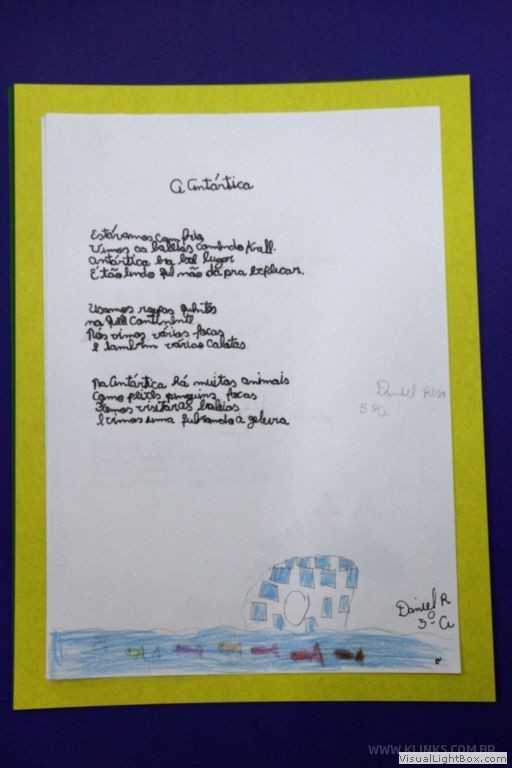 A Antártica
Estávamos com frio,
Vimos as baleias comendo Krill.
Antártica
lugar
É tão lindo que não dá pra explicar.
Usamos roupas quentes
continente
Nós vimos várias focas
e também várias calotas.
Na Antártica há muitos animais
Como peixes, pinguins, focas
Fomos visitar as baleias
vimos uma quebrando a geleira
Daniel
5ºA
Daniel R
5ºA
WWW.KLINKS.COM.BR
VisualLightBox.com